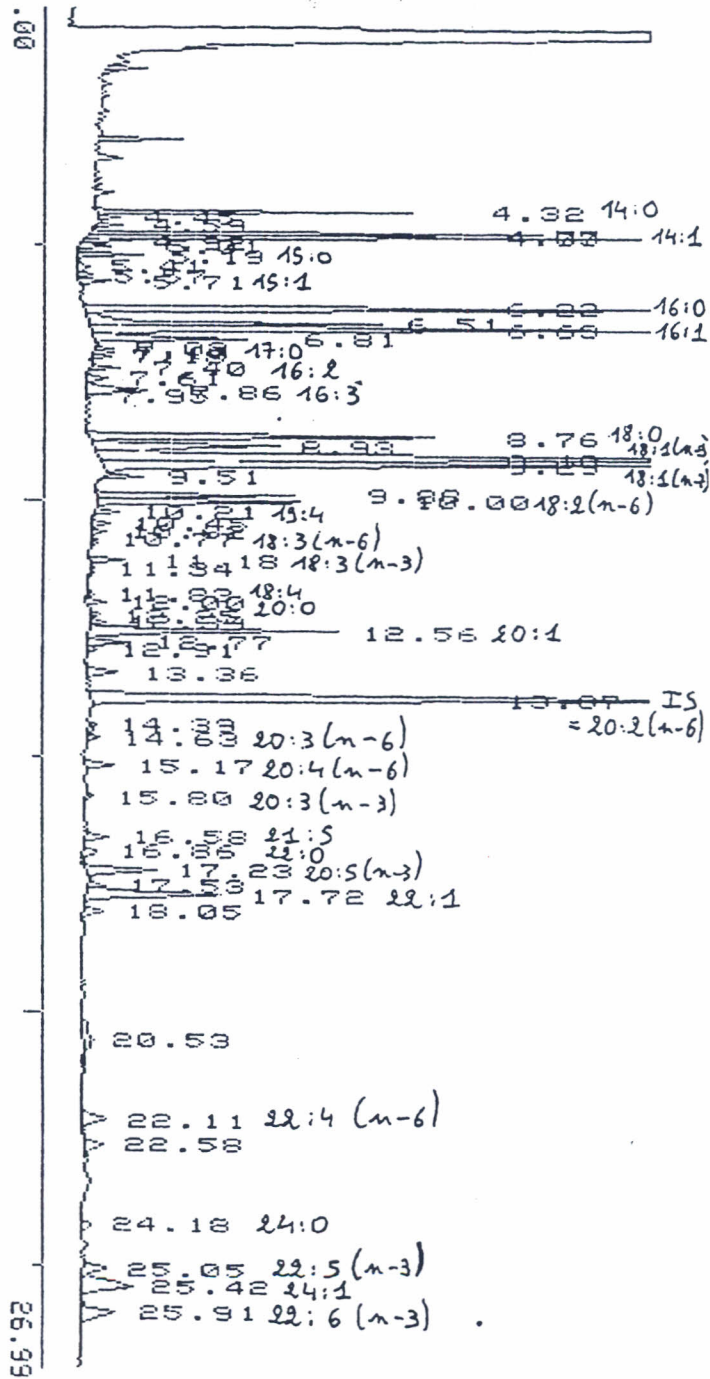 00.
4.32 14:0
14:1
15:0
5.77 1 15:1
16:0
6.51
6.63 16:1
6.81
17:0
16:2
7.61
7.95 .86 16:3
8.76 18:0
8.93
18:1(n-9)
18:1(n-7)
9.51
9.88 10.00 18:2(n-6)
10.21 19:4
10.77 18:3(n-6)
11.18 18:3(n-3)
11.34
11.83 18:4
20:0
12.56 20:1
12.77
12.91
13.36
13.87 IS
= 20:2(n-6)
14.33
14.63 20:3(n-6)
15.17 20:4(n-6)
15.80 20:3(n-3)
16.58 21:5
16.86 22:0
17.23 20:5(n-3)
17.53
17.72 22:1
18.05
20.53
22.11 22:4 (n-6)
22.58
24.18 24:0
25.05 22:5(n-3)
25.42 24:1
25.91 22:6 (n-3)
26.99